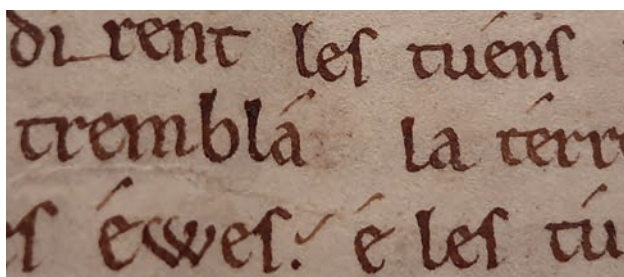 di rent leſ tuénſ
tremblá la térre
es éweſ. é leſ tu